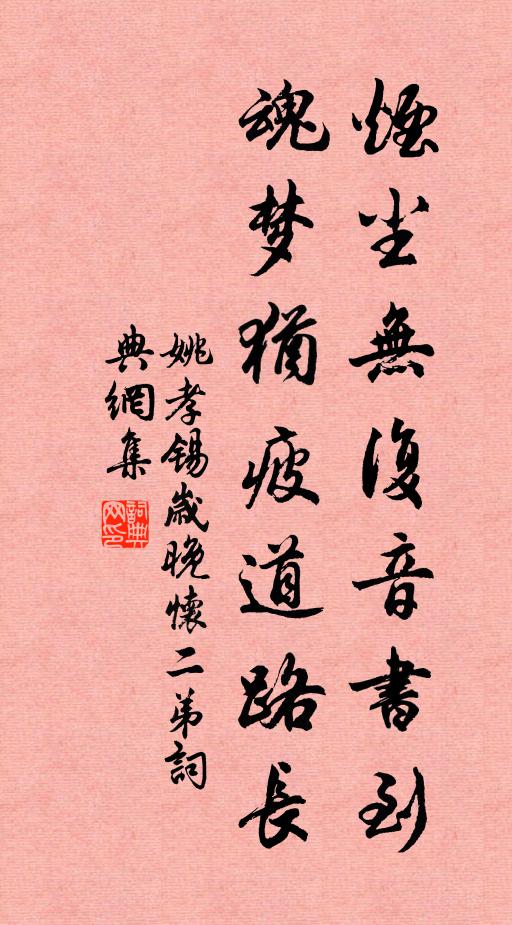 煙尘無復音書到
魂梦猶疲道路長
姚孝锡歳晚懷二弟詞
典網集
詞典网印